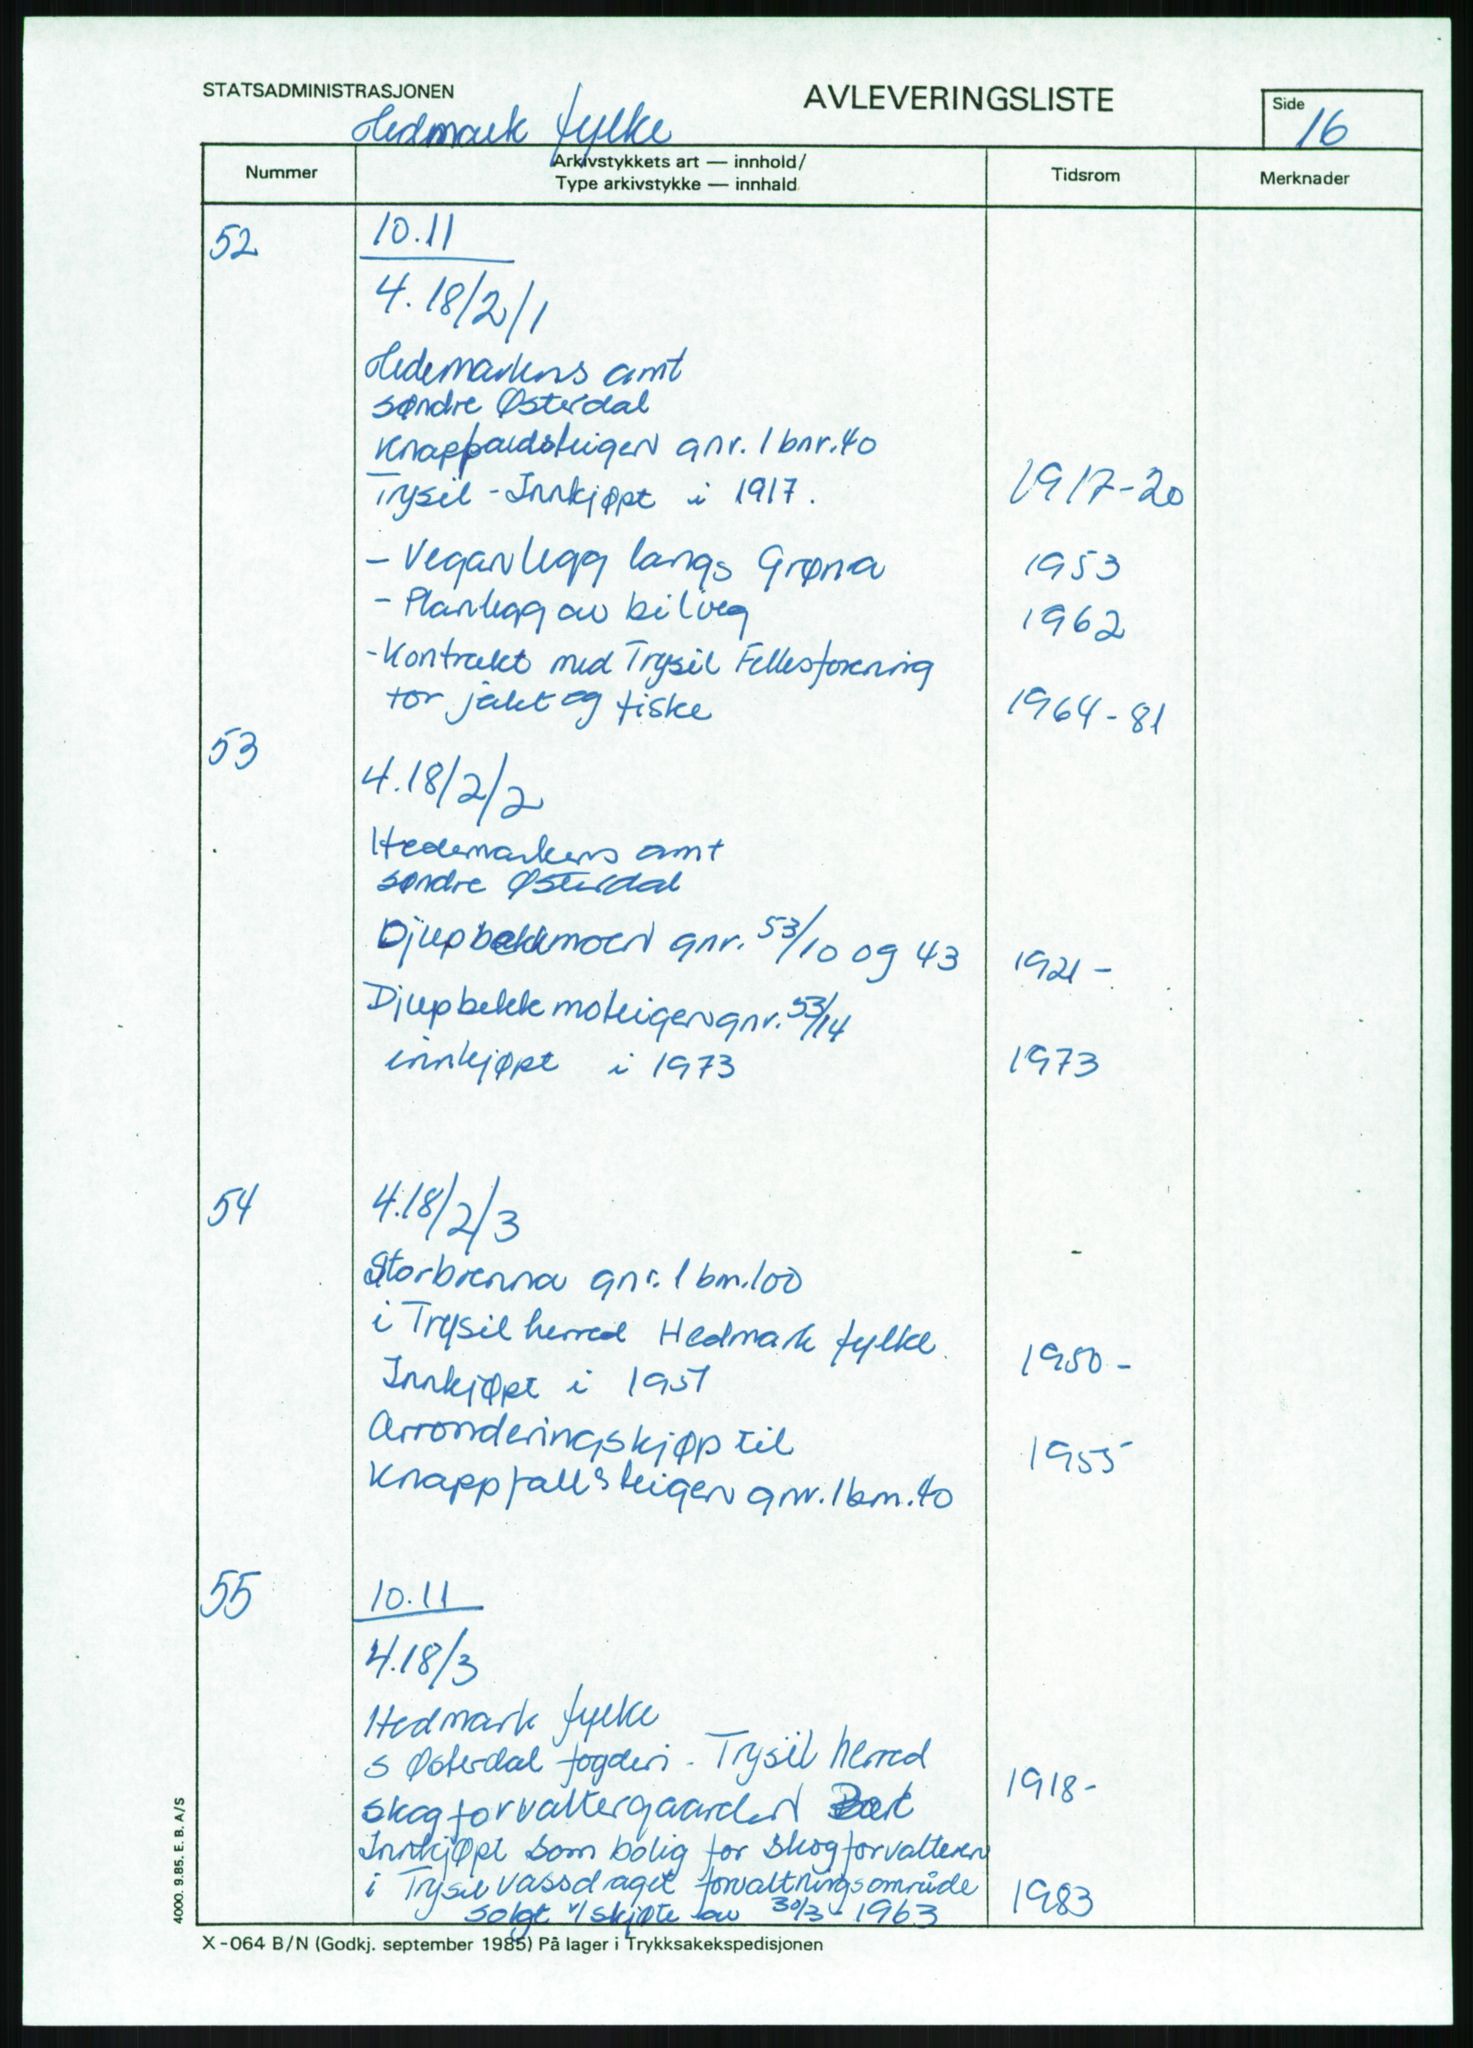 STATSADMINISTRASJONEN
AVLEVERINGSLISTE
Side 16
Hedmark fylke
Nummer
Arkivstykkets art — innhold/
Type arkivstykke — innhald
Tidsrom
Merknader
52
10.11
4.18/2/1
Hedemarkens amt
søndre Østerdal
gnr. 1 bnr. 40
Trysil - Innkjøpt i 1917. 1917-20
- Veganlegg langs Grøna 1953
- Planlegg av bilveg 1962
- Kontrakt med Trysil Fellesforening
for jakt og fiske 1964-81
53
4.18/2/2
Hedemarkens amt
søndre Østerdal
Djupbekkmoen gnr. 53/10 og 43 1921-
Djupbekkmoteigen gnr. 53/14
innkjøpt i 1973 1973
54 4.18/2/3
Storbrenna gnr. 1 bnr. 100
i Trysil herred Hedmark fylke
Innkjøpt i 1951 1950-
Arronderingskjøp til
Knappfallsteigen gnr. 1 bnr. 40 1955
55 10.11
4.18/3
Hedmark fylke
S Østerdal fogderi - Trysil herred
Skogforvaltergaarden 1918-
Innkjøpt som bolig for skogforvalteren
i Trysilvassdraget forvaltningsområde
solgt v/skjøte av 30/3-1963 1983
X-064 B/N (Godkj. september 1985) På lager i Trykksakekspedisjonen
4000. 9.85. E. B. A/S